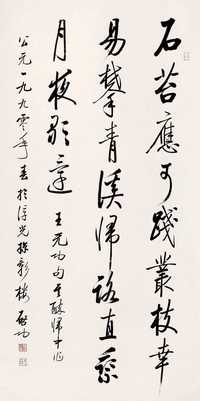 石苔應可踐叢枝幸
易攀青溪歸路直乘
月夜歌還 王无功句 醉歸中作
公元一九九零年春於浮光掠影樓 啓功